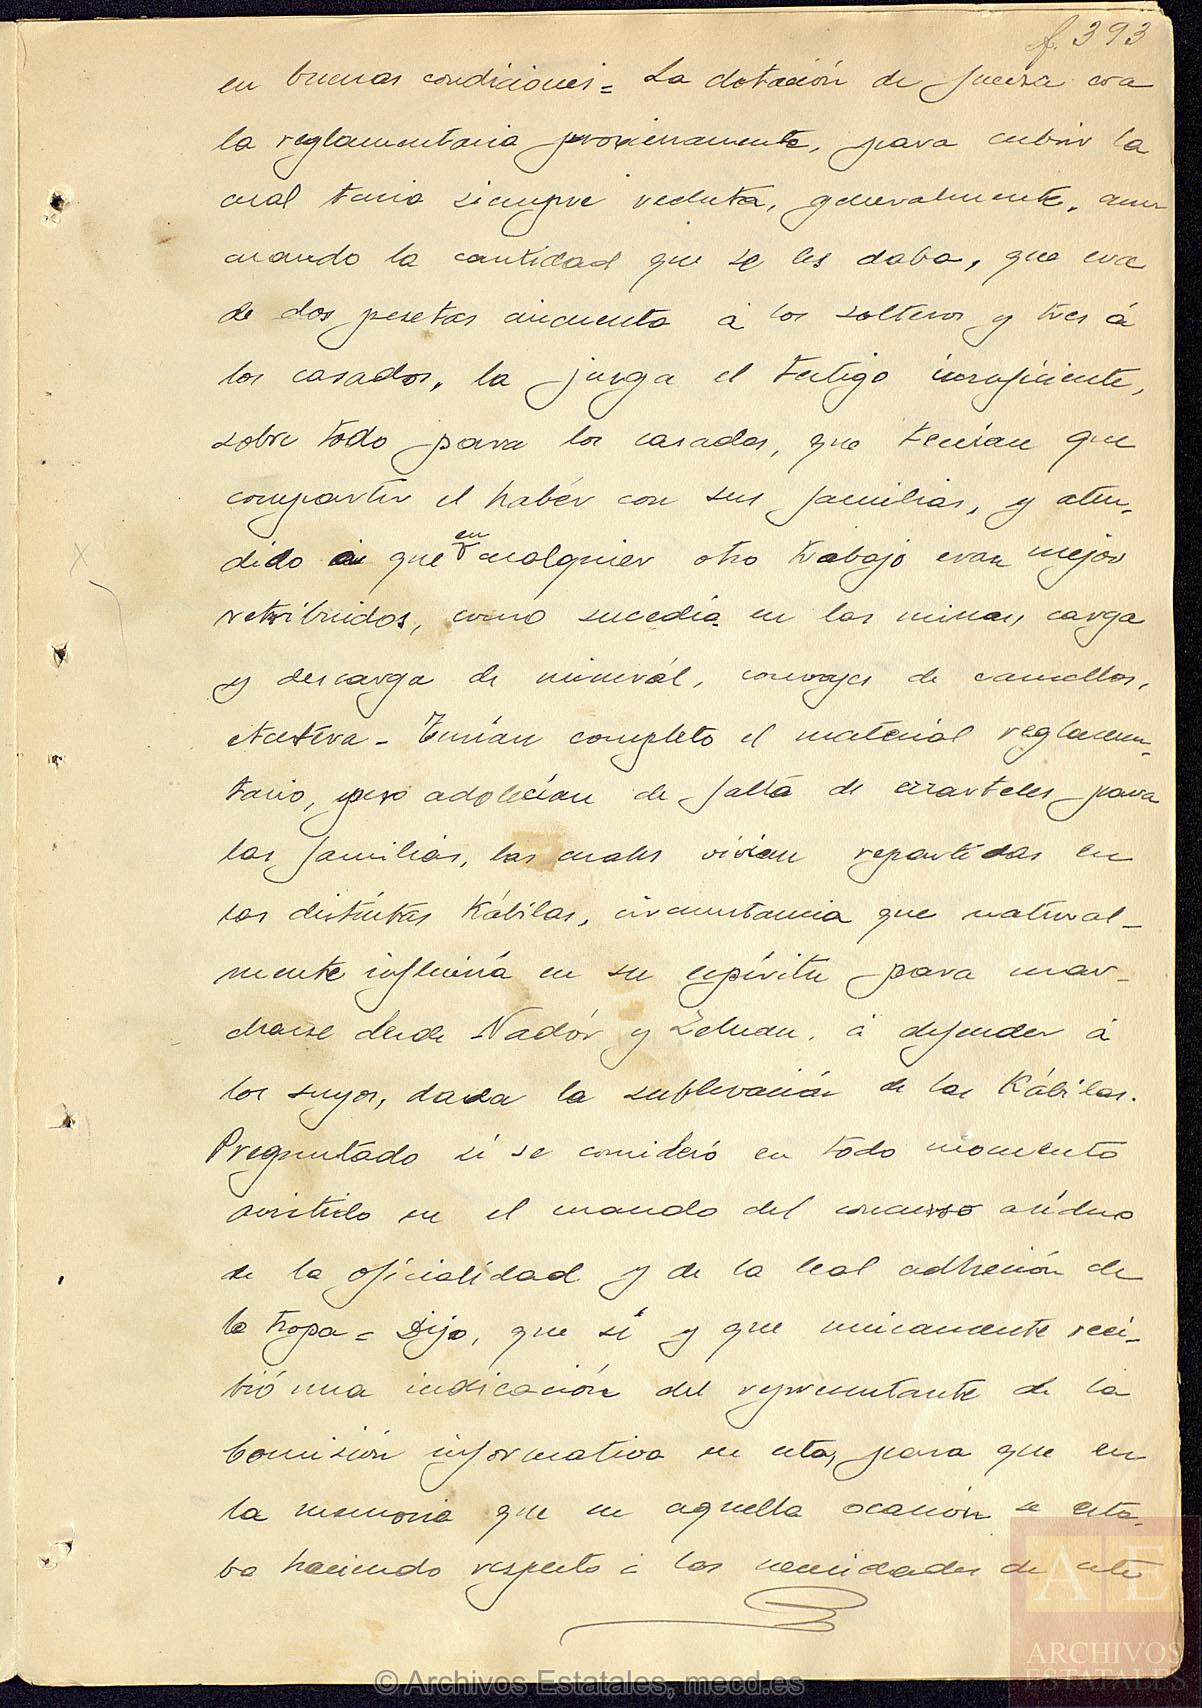 f. 393
en buenas condiciones = La dotación de fuerza era
la reglamentaria proximamente, para cubrir la
cual tenia siempre recluta, generalmente, aun
cuando la cantidad que se les daba, que era
de dos pesetas cincuenta á los solteros y tres á
los casados, la juzga el testigo insuficiente,
sobre todo para los casados, que tenian que
compartir el habér con sus familias, y aten-
dido á que en cualquier otro trabajo eran mejor
retribuidos, como sucedia en las minas, carga
y descarga de minerál, convoyes de camellos,
etcétera - Tenian completo el materiál reglamen-
tario, pero adolecian de falta de cuarteles para
las familias, las cuales vivian repartidas en
las distintas Kábilas, circunstancia que natural-
mente influiria en su espíritu para mar-
charse desde Nadór y Zeluan, á defender á
los suyos, dada la sublevación de las Kábilas.
Preguntado si se consideró en todo momento
asistido en el mando del concurso asíduo
de la oficialidad y de la leal adhesión de
la tropa = Dijo, que sí y que unicamente reci-
bió una indicación del representante de la
Comisión informativa en esta, para que en
la memoria que en aquella ocasión se esta-
ba haciendo respecto á las necesidades de este
© Archivos Estatales, mecd.es
AE
ARCHIVOS
ESTATALES